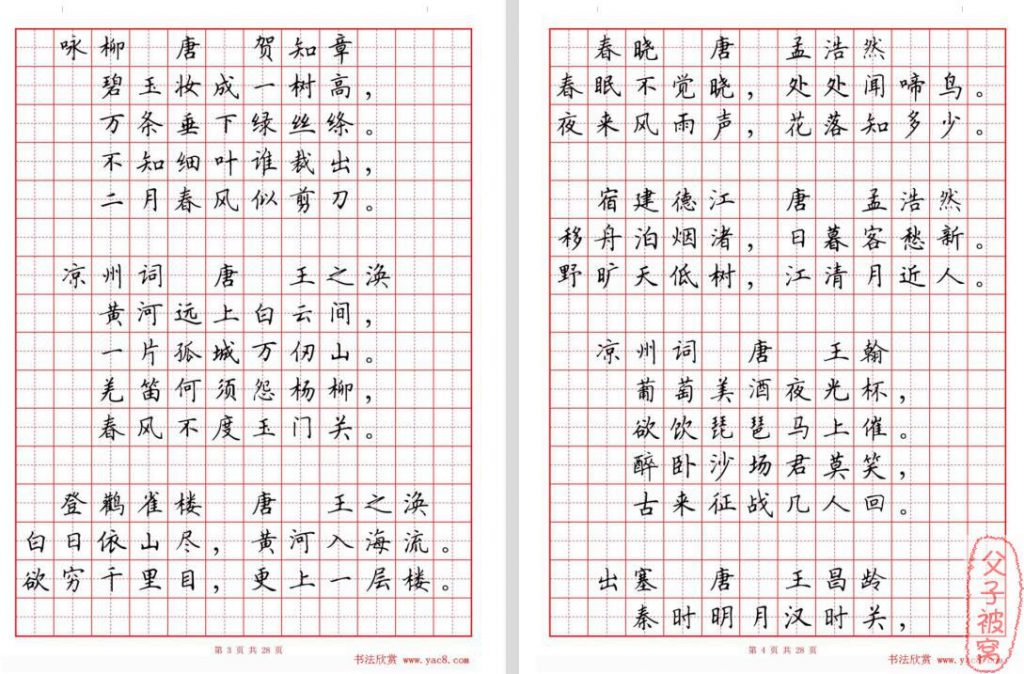 咏柳 唐 贺知章
碧玉妆成一树高，
万条垂下绿丝绦。
不知细叶谁裁出，
二月春风似剪刀。
凉州词 唐 王之涣
黄河远上白云间，
一片孤城万仞山。
羌笛何须怨杨柳，
春风不度玉门关。
登鹳雀楼 唐 王之涣
白日依山尽，黄河入海流。
欲穷千里目，更上一层楼。
第 3 页 共 28 页
书法欣赏 www.yac8.com
春晓 唐 孟浩然
春眠不觉晓，处处闻啼鸟。
夜来风雨声，花落知多少。
宿建德江 唐 孟浩然
移舟泊烟渚，日暮客愁新。
野旷天低树，江清月近人。
凉州词 唐 王翰
葡萄美酒夜光杯，
欲饮琵琶马上催。
醉卧沙场君莫笑，
古来征战几人回。
出塞 唐 王昌龄
秦时明月汉时关，
第 4 页 共 28 页
书法欣赏 www.yac8.com
父子被窝